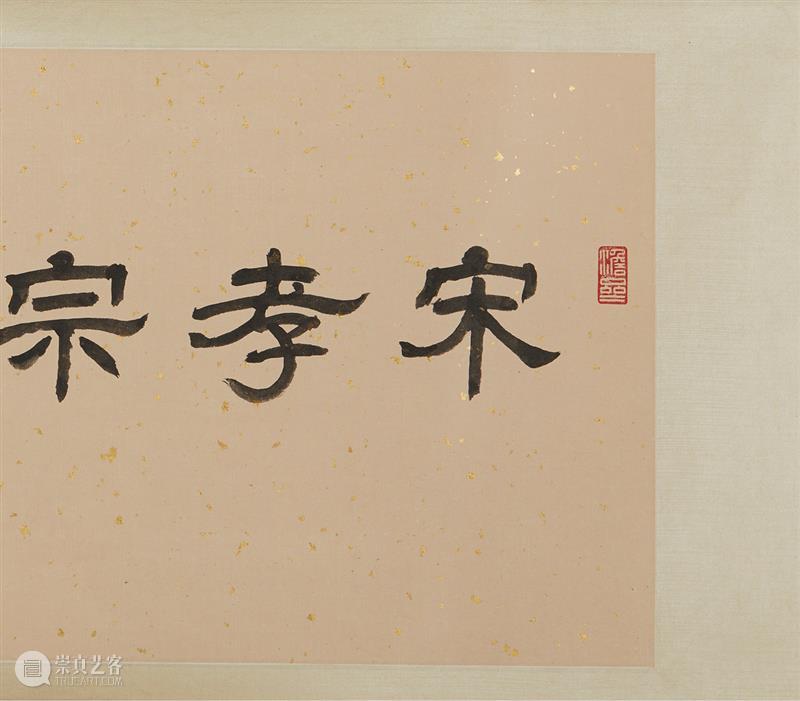 宋孝宗
崇真艺客
TRUEART.COM